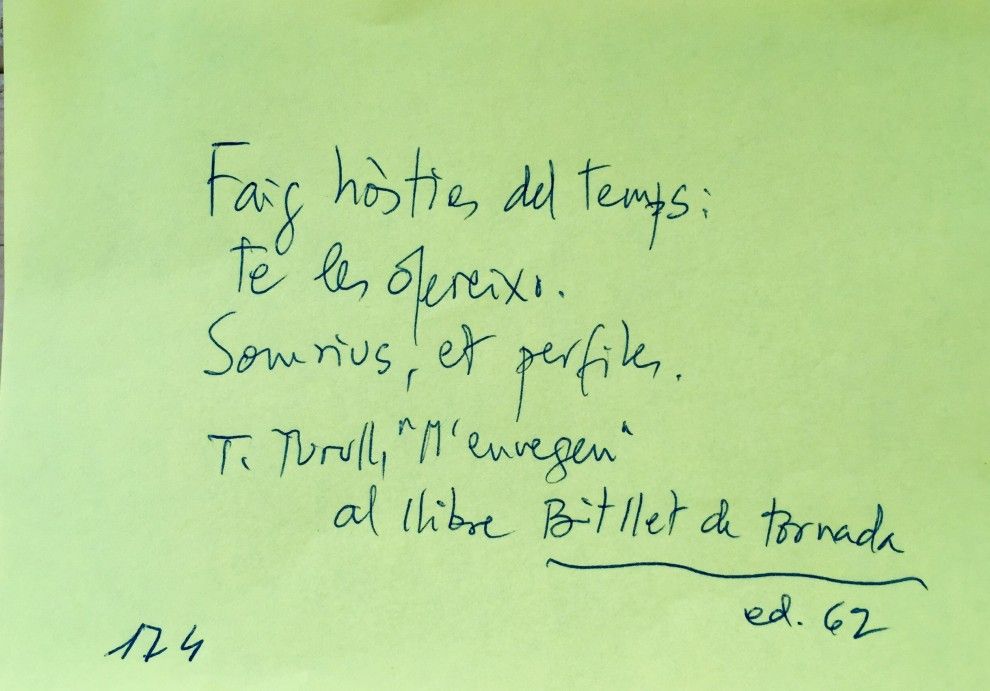 Faig hòsties del temps:
te les ofereixo.
Somrius, et perfiles.
T. Turull, "M'envegen"
al llibre Bitllet de tornada
ed. 62
174